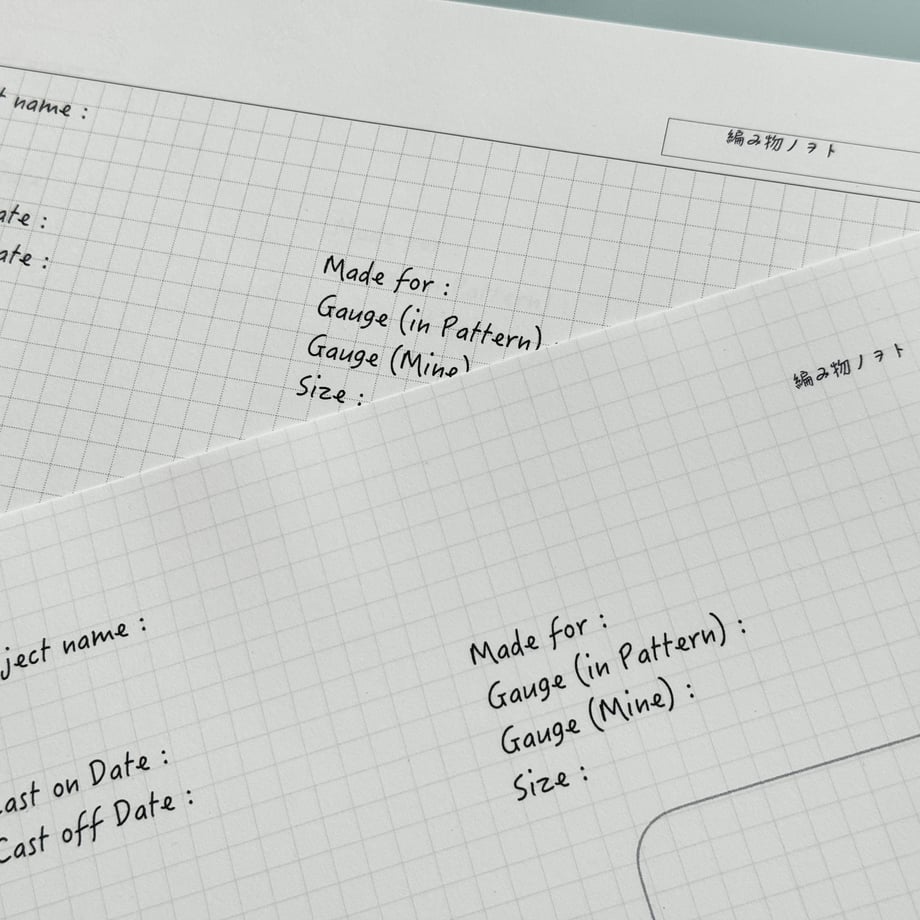 編み物ノヲト
t name :
ate :
ate :
Made for :
Gauge (in Pattern)
Gauge (Mine)
Size :
編み物ノヲト
ject name :
Cast on Date :
Cast off Date :
Made for :
Gauge (in Pattern) :
Gauge (Mine) :
Size :